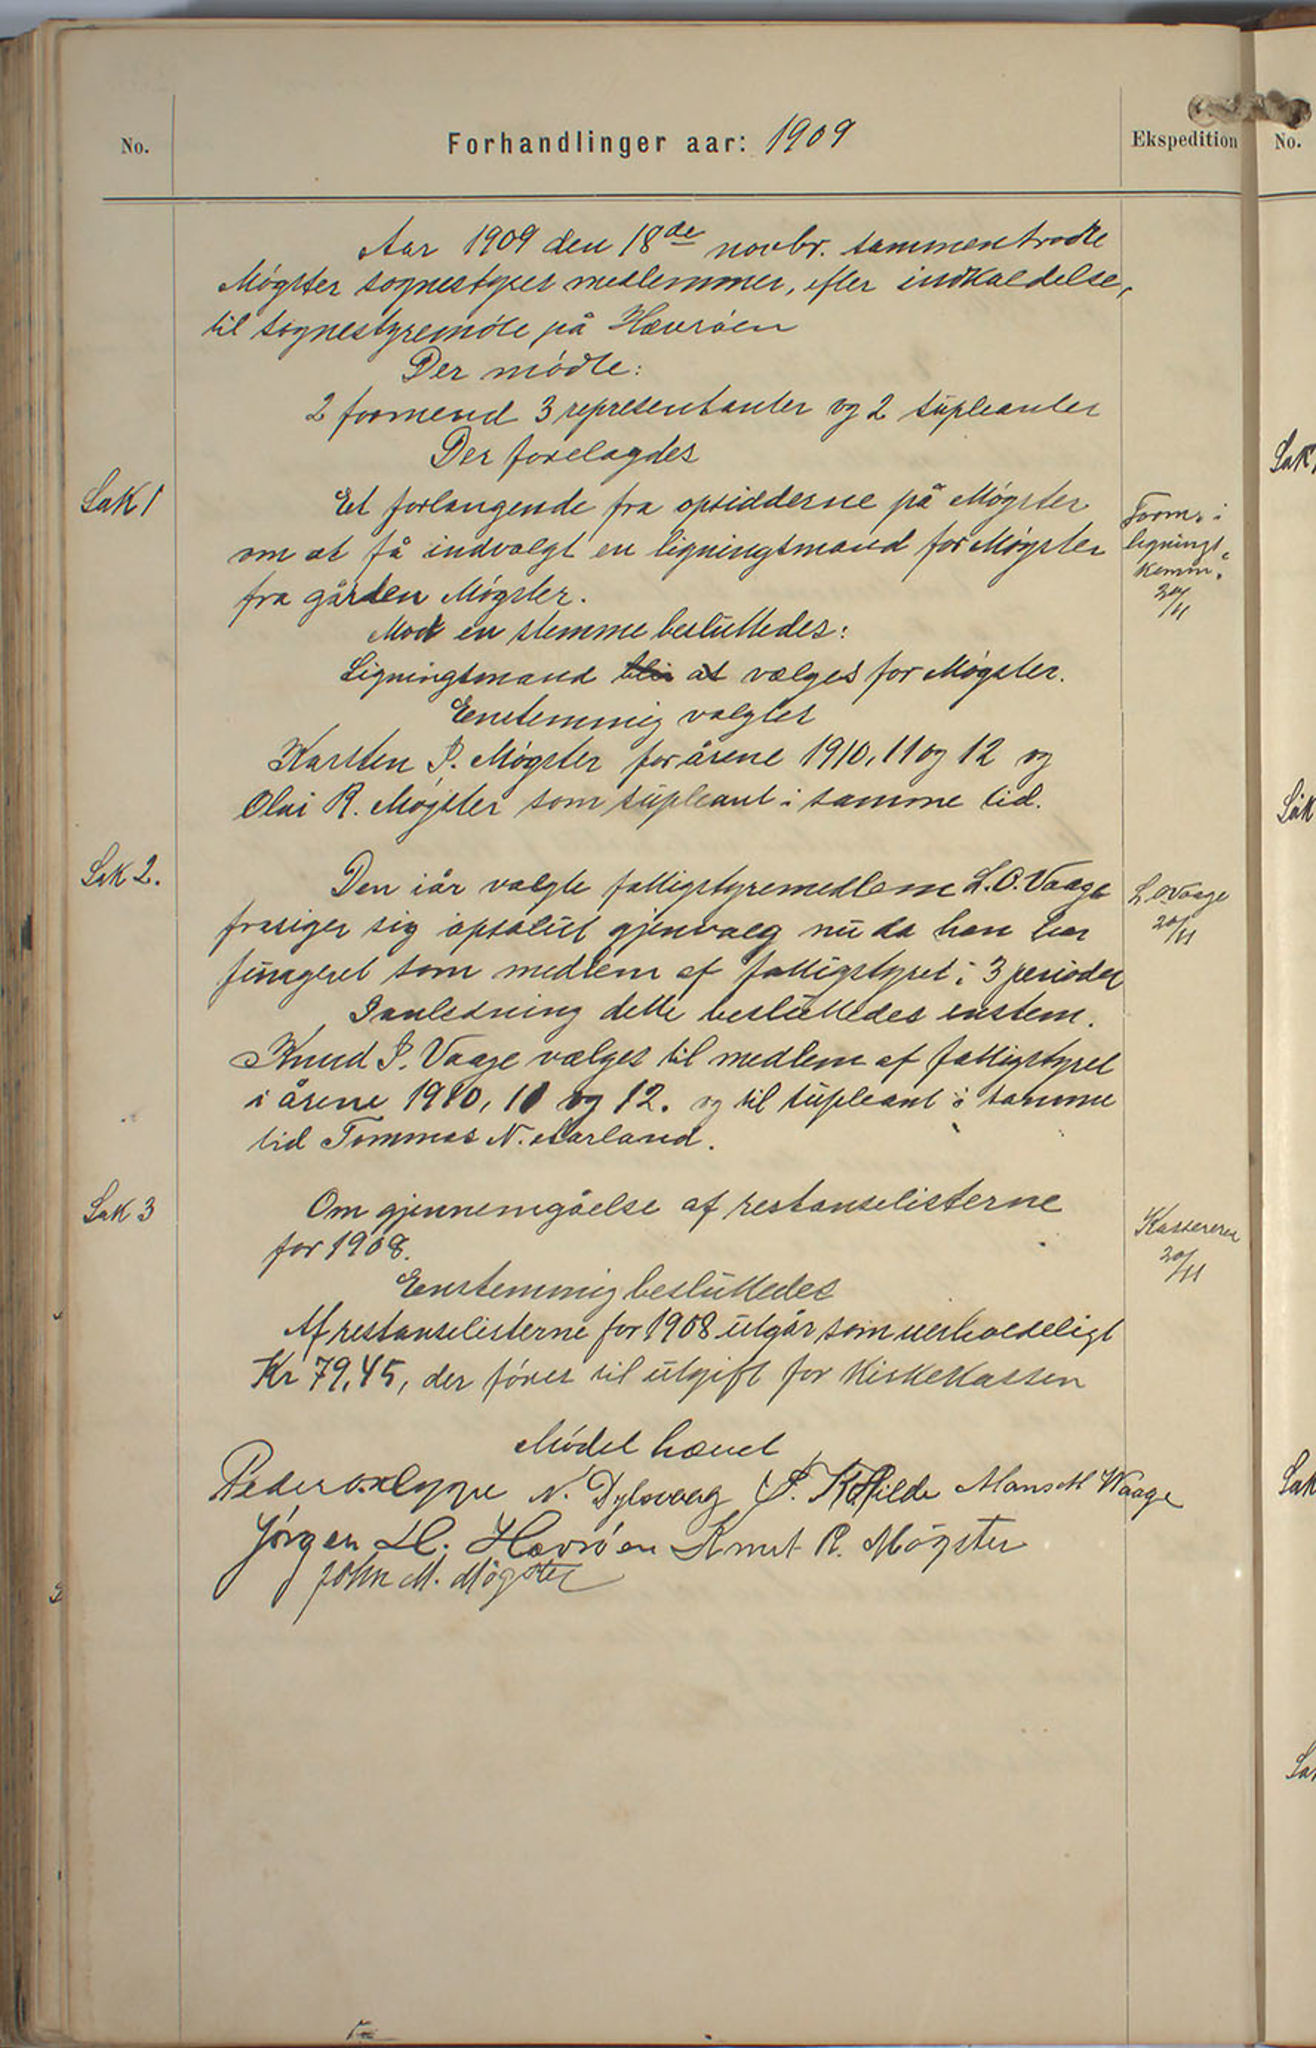 No. Forhandlinger aar: 1909 Ekspedition No.
Aar 1909 den 18de novbr. sammentrådte
Møgster sognestyres medlemmer, efter indkaldelse,
til sognestyremöte på Hævröen
Der mödte:
2 formend 3 representanter og 2 supleanter
Der forelagdes
Sak 1 Et forlangende fra opsidderne på Møgster
om at få indvalgt en ligningsmand for Møgster
fra gården Møgster.
Form. i
lignings
komm.
20/11
Mod en stemme besluttedes:
Ligningsmand blir at vælges for Møgster.
Enstemmig valgtes
Karsten P. Møgster for årene 1910, 11 og 12 og
Olai R. Møgster som supleant i samme tid.
Sak 2. Den iår valgte fattigstyremedlem L.O. Vaage
frasiger sig absolut gjenvalg nu da han har
fungeret som medlem af fattigstyret i 3 perioder
L.O. Vaage
20/11
I anledning dette besluttedes enstem.
Knud P. Vaage vælges til medlem af fattigstyret
i årene 1910, 11 og 12. og til supleant i samme
tid Tommas N. Aarland.
Sak 3 Om gjennemgåelse af restanselisterne
for 1908.
Kassereren
20/11
Enstemmig besluttedes
Af restanselisterne for 1908 utgår som uerholdeligt
Kr 79,45, der föres til utgift for Kirkekassen
Mödet hævet
Peder N. Dylsvaag Mons M Waage
Jörgen H. Hævröen Knut R. Møgster
John M. Mögster
Sak
Sak
Sak
Sak